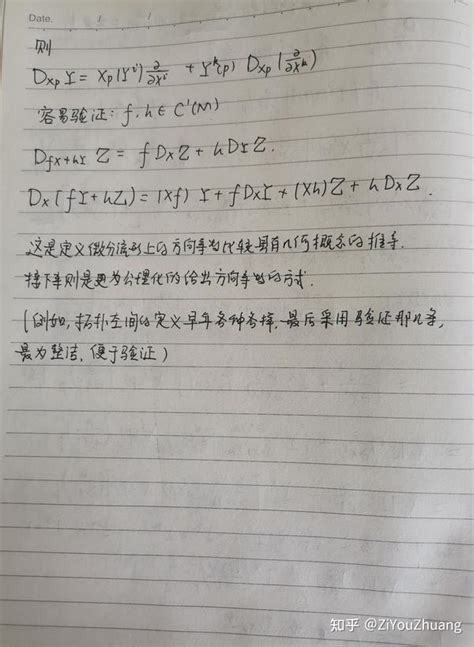 Date. / /
则
D_{X_p} Y = X_p(Y^i) ∂/∂x^i + Y^k(p) D_{X_p}(∂/∂x^k)
容易验证: f, h ∈ C'(M)
D_{fX+hY} Z = f D_X Z + h D_Y Z.
D_X(fY+hZ) = (Xf) Y + f D_X Y + (Xh) Z + h D_X Z.
这是定义微分流形上的方向导数比较具有几何概念的推导.
接下来则是更为公理化的给出方向导数的方式.
(例如, 拓扑空间的定义早年各种各样, 最后采用验证那几条,
最为整洁, 便于验证)
知乎 @ZiYouZhuang